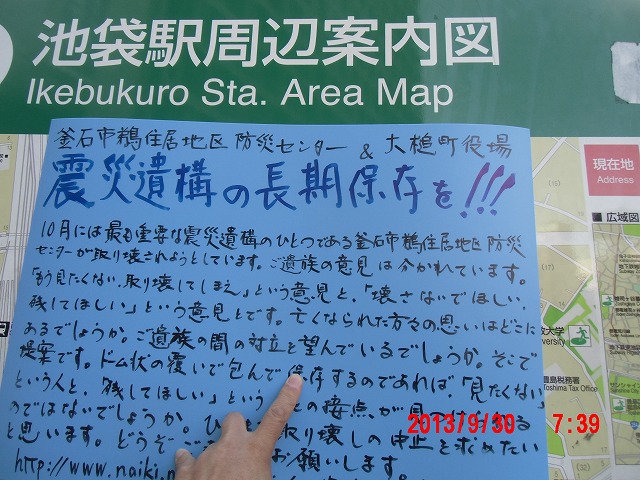 池袋駅周辺案内図
Ikebukuro Sta. Area Map
現在地
Address
広域図
釜石市鵜住居地区防災センター & 大槌町役場
震災遺構の長期保存を!!!
10月には最も重要な震災遺構のひとつである釜石市鵜住居地区防災
センターが取り壊されようとしています。ご遺族の意見は分かれています。
「もう見たくない、取り壊してしまえ」という意見と、「壊さないでほしい
残してほしい」という意見とです。亡くなられた方々の思いはどこに
あるでしょうか。ご遺族の間の対立を望んでいるでしょうか。そこで
提案です。ドーム状の覆いで包んで保存するのであれば「見たくない」
という人と、残してほしい」という の接点が見つ る
のではないでしょうか。ひ 取り壊しの中止を求めたい
と思います。どうぞ お願いします。
http://www.naiki.n
豊島税務署
Toshima Tax Office
2013/9/30 7:39